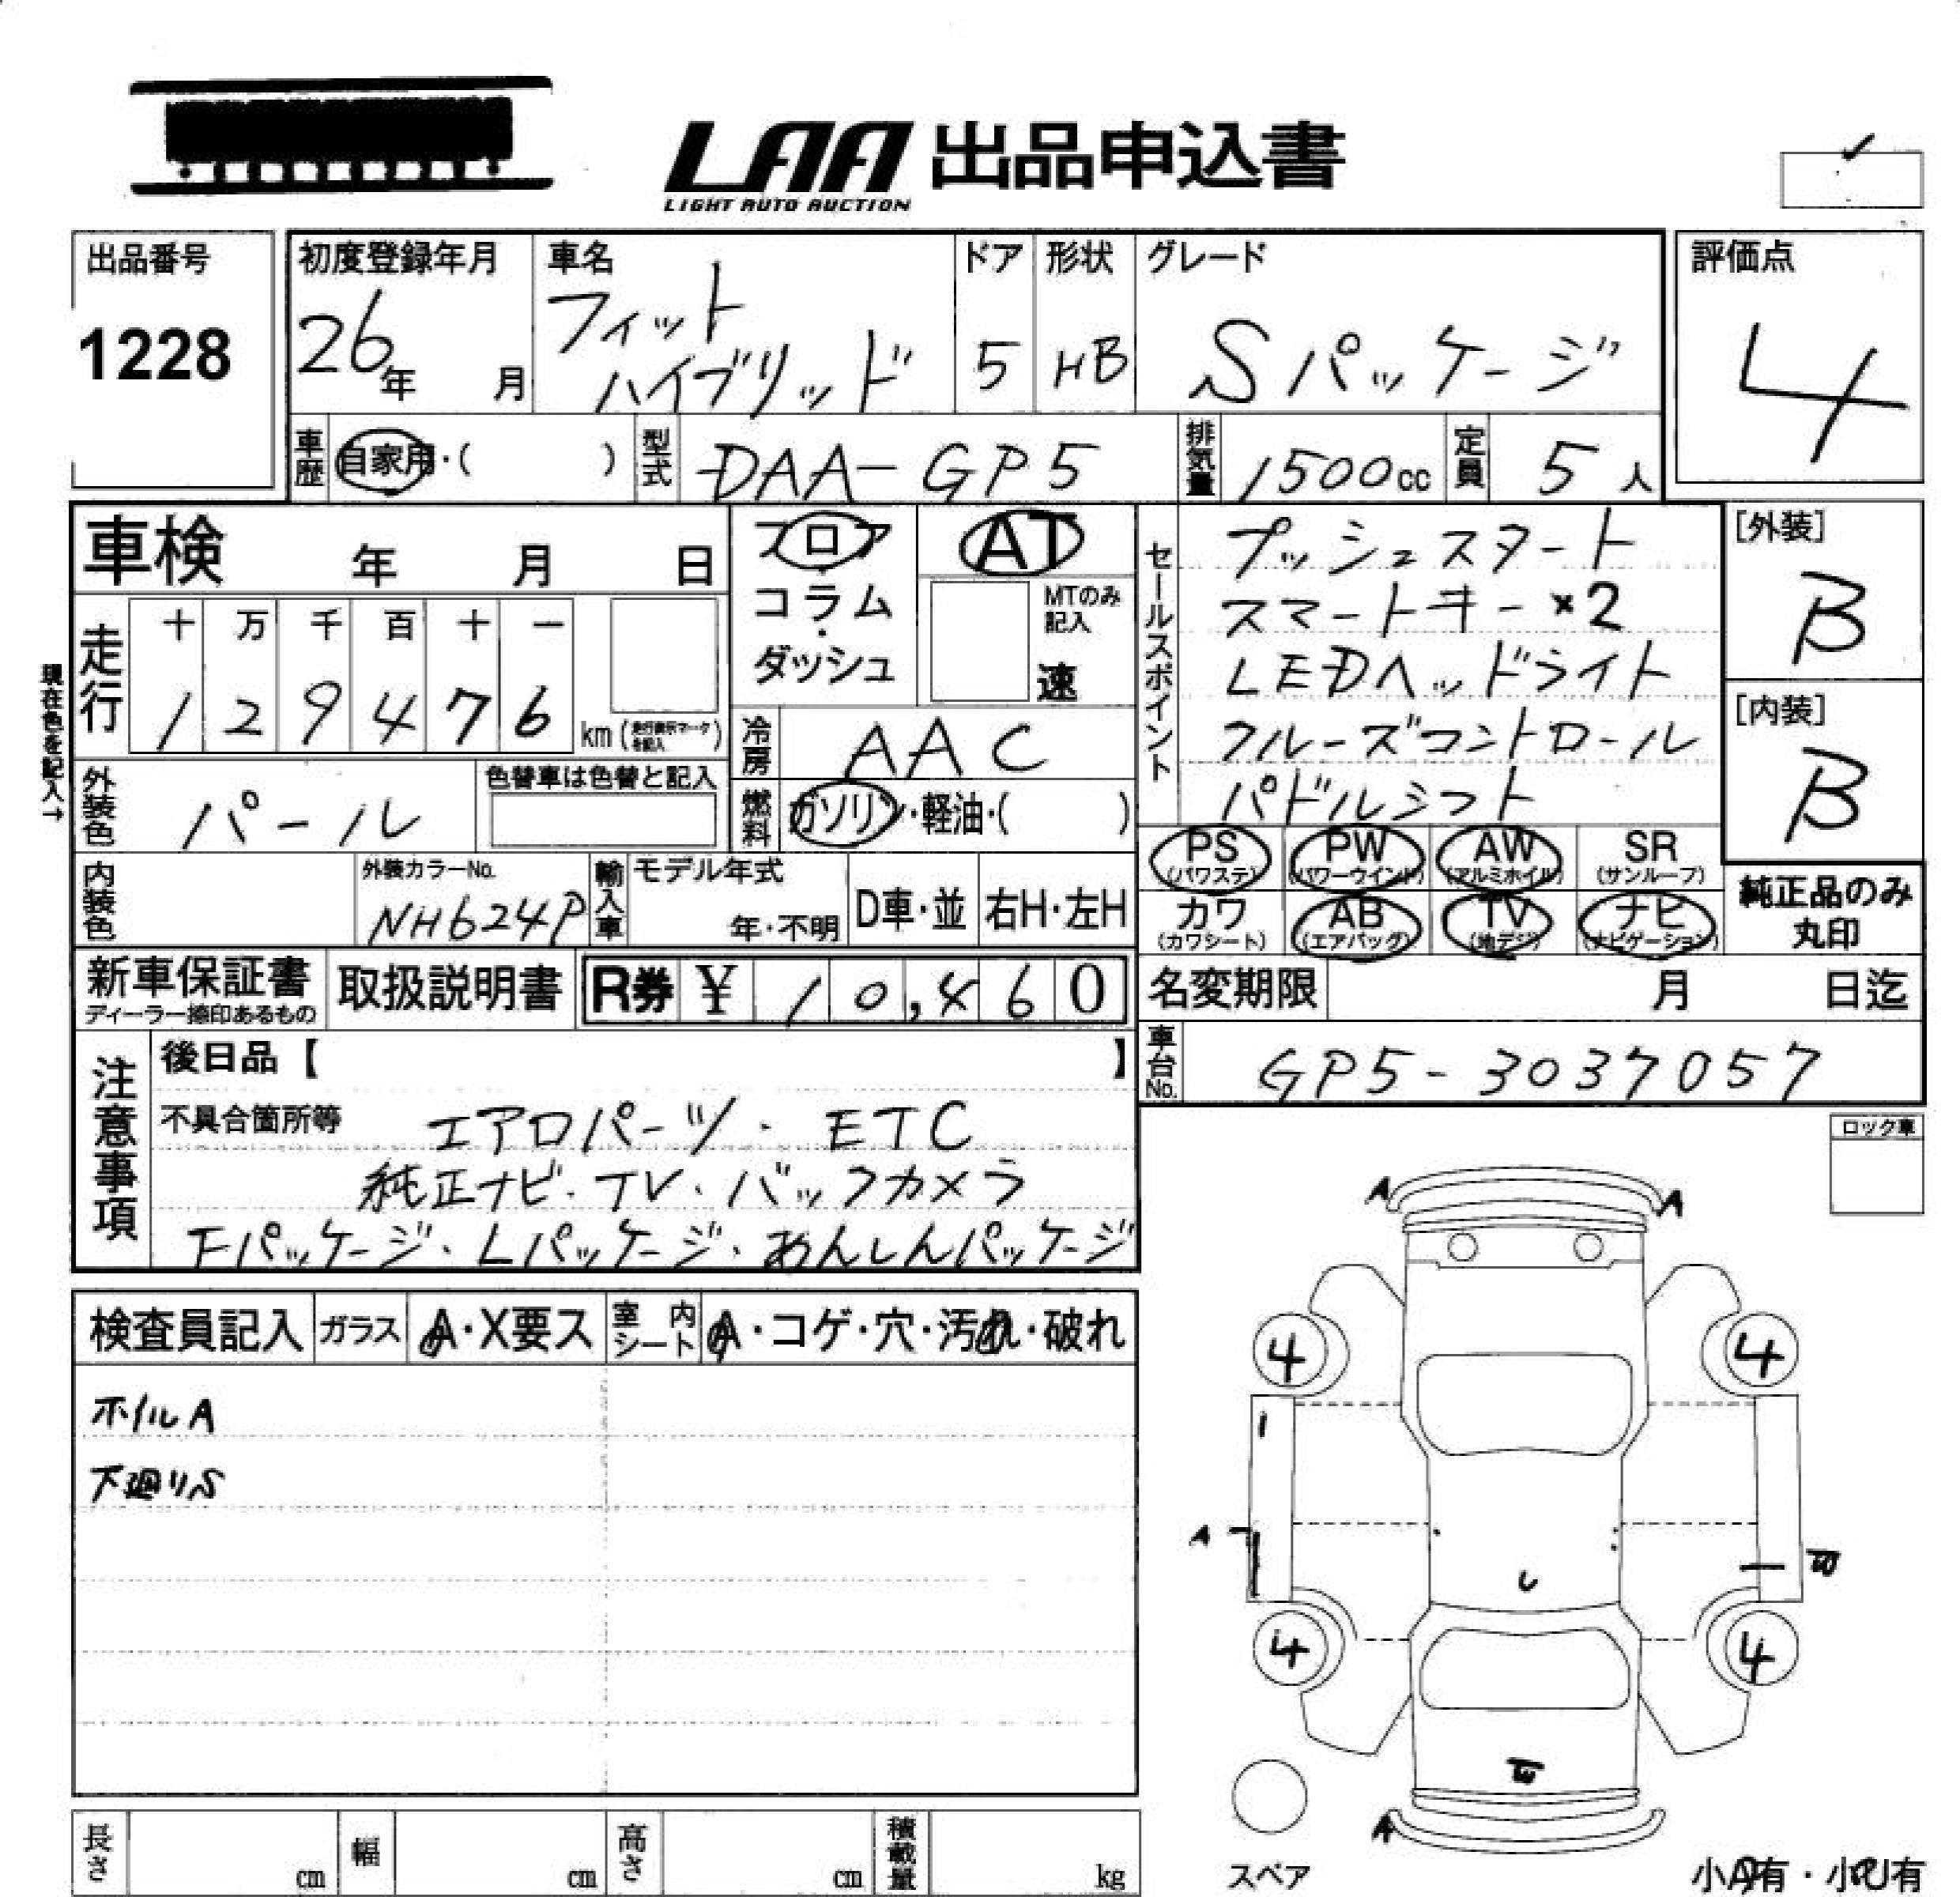 LAA 出品申込書
LIGHT AUTO AUCTION
出品番号
1228
初度登録年月
26年 月
車名
フィット
ハイブリッド
ドア
5
形状
HB
グレード
Sパッケージ
評価点
4
車歴 自家用・( )
型式 DAA-GP5
排気量 1500cc
定員 5人
車検 年 月 日
フロア
・
コラム
・
ダッシュ
AT
MTのみ
記入
速
セールスポイント
プッシュスタート
スマートキー×2
LEDヘッドライト
クルーズコントロール
パドルシフト
[外装]
B
[内装]
B
現在色を記入→
走行
十 万 千 百 十 一
1 2 9 4 7 6
km (走行表示マークを記入)
冷房 AAC
外装色 パール
色替車は色替と記入
燃料 ガソリン・軽油・( )
内装色
外装カラーNo.
NH624P
輸入車
モデル年式
年・不明
D車・並
右H・左H
PS
(パワステ)
PW
(パワーウインド)
AW
(アルミホイル)
SR
(サンルーフ)
カワ
(カワシート)
AB
(エアバッグ)
TV
(地デジ)
ナビ
(ナビゲーション)
純正品のみ
丸印
新車保証書
ディーラー捺印あるもの
取扱説明書
R券 ¥ 10,460
名変期限 月 日迄
車台No. GP5-3037057
注意事項
後日品【 】
不具合箇所等
エアロパーツ・ETC
純正ナビ・TV・バックカメラ
Fパッケージ・Lパッケージ・あんしんパッケージ
ロック車
検査員記入
ガラス
A・X要ス
室内
シート
A・コゲ・穴・汚れ・破れ
ホイルA
下廻りS
A
A
4
4
A
4
4
A
スペア
小A有・小U有
長さ cm
幅 cm
高さ cm
積載量 kg